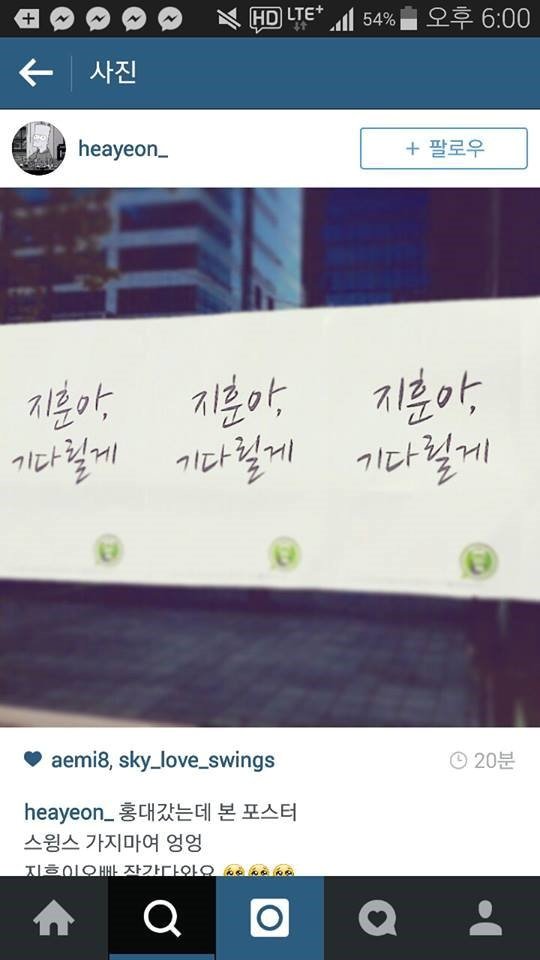 HD LTE+ 54% 오후 6:00
사진
heayeon_
+ 팔로우
지훈아, 지훈아, 지훈아,
기다릴게 기다릴게 기다릴게
aemi8, sky_love_swings
20분
heayeon_ 홍대갔는데 본 포스터
스윙스 가지마여 엉엉
지훈이오빠 잘갔다와요 🥺🥺🥺